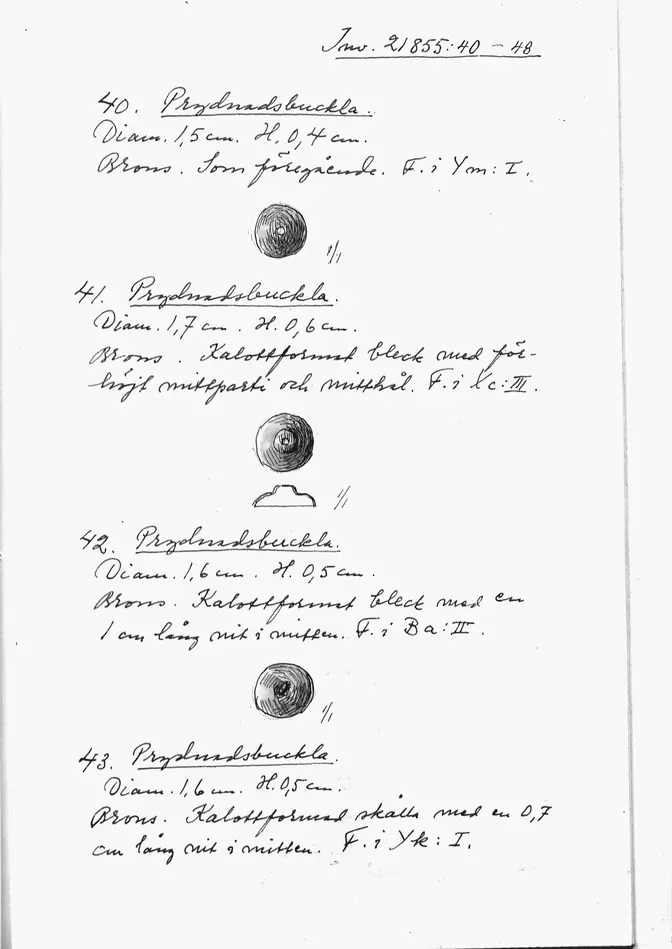 Inv. 21855:40 – 48
40. Prydnadsbuckla.
Diam. 1,5 cm. H. 0,4 cm.
Brons. Som föregående. F. i Ym: I.
1/1
41. Prydnadsbuckla.
Diam. 1,7 cm. H. 0,6 cm.
Brons. Kalottformat bleck med för-
höjt mittparti och mitthål. F. i Xc: III.
1/1
42. Prydnadsbuckla.
Diam. 1,6 cm. H. 0,5 cm.
Brons. Kalottformat bleck med en
1 cm lång nit i mitten. F. i Ba: II.
1/1
43. Prydnadsbuckla.
Diam. 1,6 cm. H. 0,5 cm.
Brons. Kalottformad skålla med en 0,7
cm lång nit i mitten. F. i Yk: I.